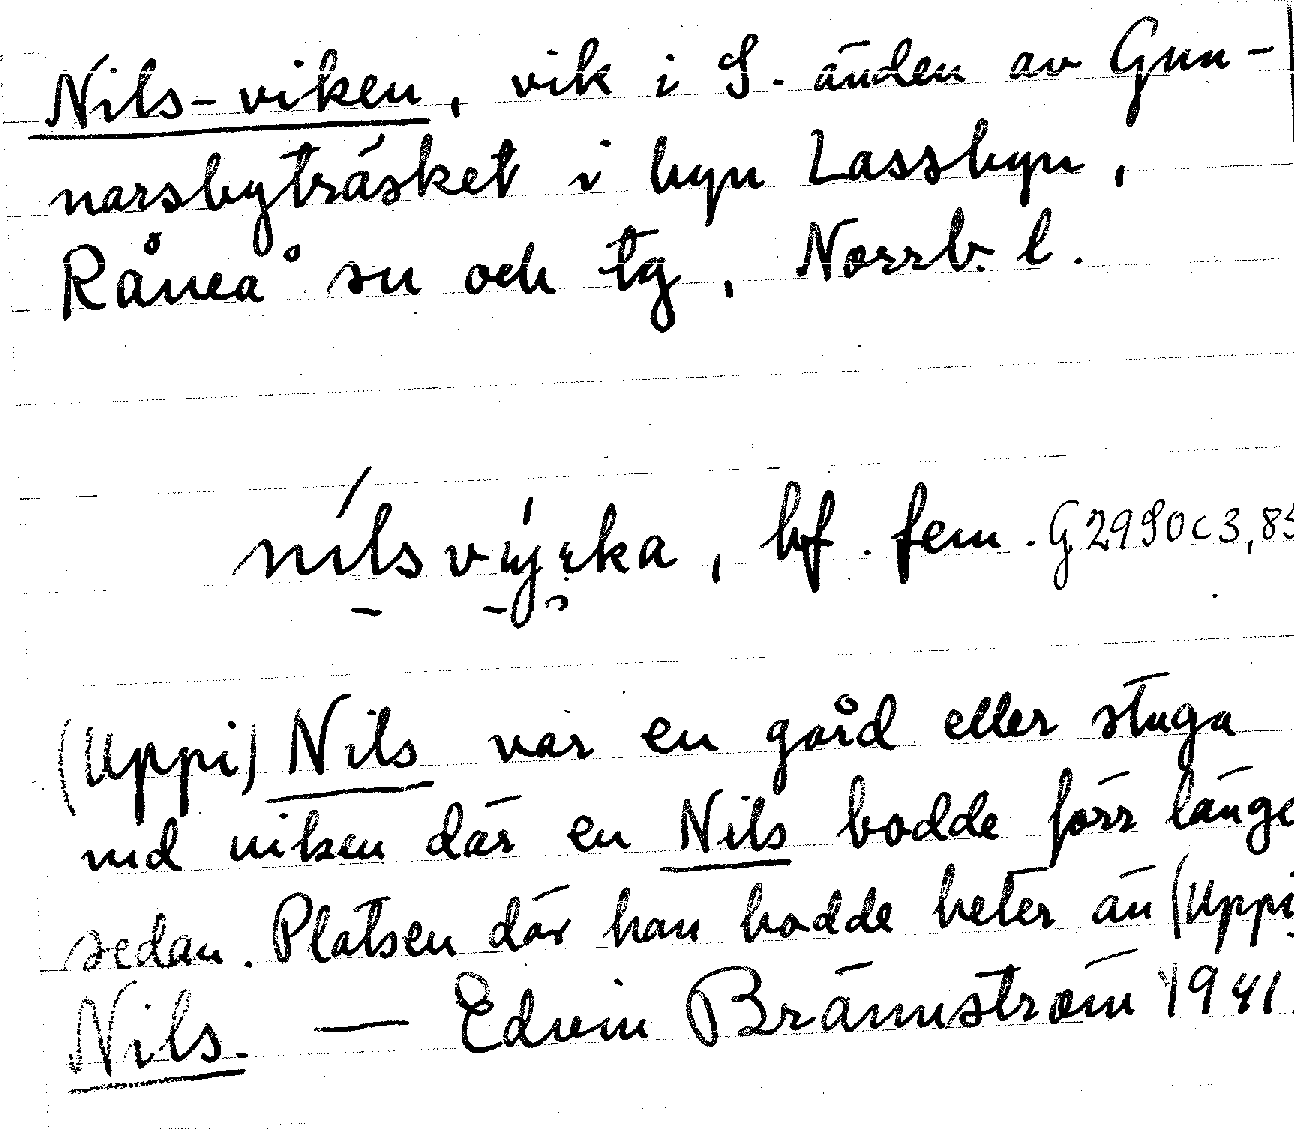 Nils-viken, vik i S. änden av Gun-
narsbyträsket i byn Lassbyn,
Råneå sn och tg, Norrb. l.
bf. fem. G2990c3,85
(Uppi) Nils var en gård eller stuga
vid viken där en Nils bodde förr länge
sedan. Platsen där han bodde heter än (Uppi)
Nils. — Edvin Brännström 1941.